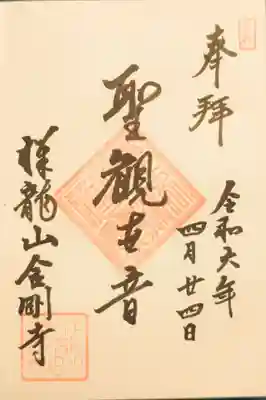 奉拝
令和六年
四月廿四日
聖觀世音
祥龍山金剛寺